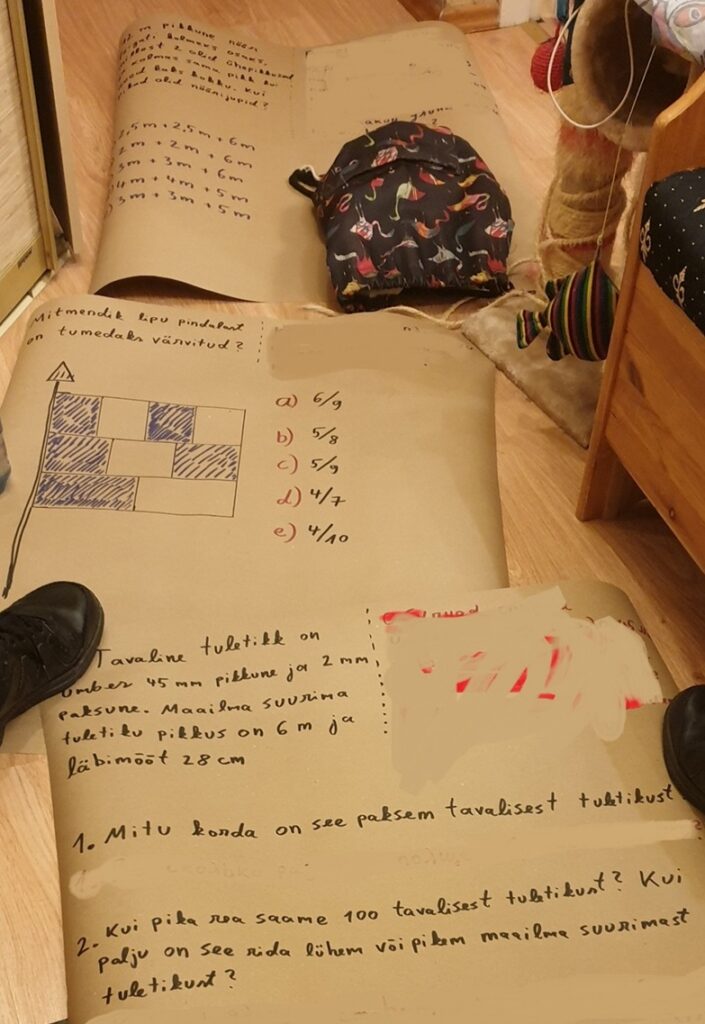 m pikkune nöör
kolmeks osaks,
2 olid ühepikkused
kolmas sama pikk kui
kaks kokku. Kui
olid nöörijupid?
5m + 2,5m + 6m
2m + 2m + 6m
3m + 3m + 6m
4m + 4m + 5m
3m + 3m + 5m
Mitmendik lipu pindalast
on tumedaks värvitud?
a) 6/9
b) 5/8
c) 5/9
d) 4/7
e) 4/10
Tavaline tuletikk on
umbes 45 mm pikkune ja 2 mm
paksune. Maailma suurima
tuletiku pikkus on 6 m ja
läbimõõt 28 cm
1. Mitu korda on see paksem tavalisest tuletikust
2. Kui pika rea saame 100 tavalisest tuletikust? Kui
palju on see rida lühem või pikem maailma suurimast
tuletikust?